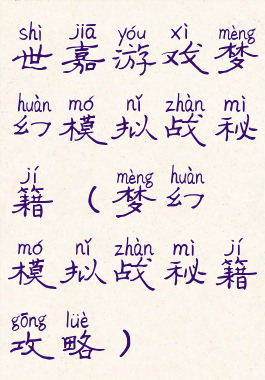 shì jiā yóu xì mèng
世嘉游戏梦
huàn mó nǐ zhàn mì
幻模拟战秘
jí mèng huàn
籍（梦幻
mó nǐ zhàn mì jí
模拟战秘籍
gōng lüè
攻略）